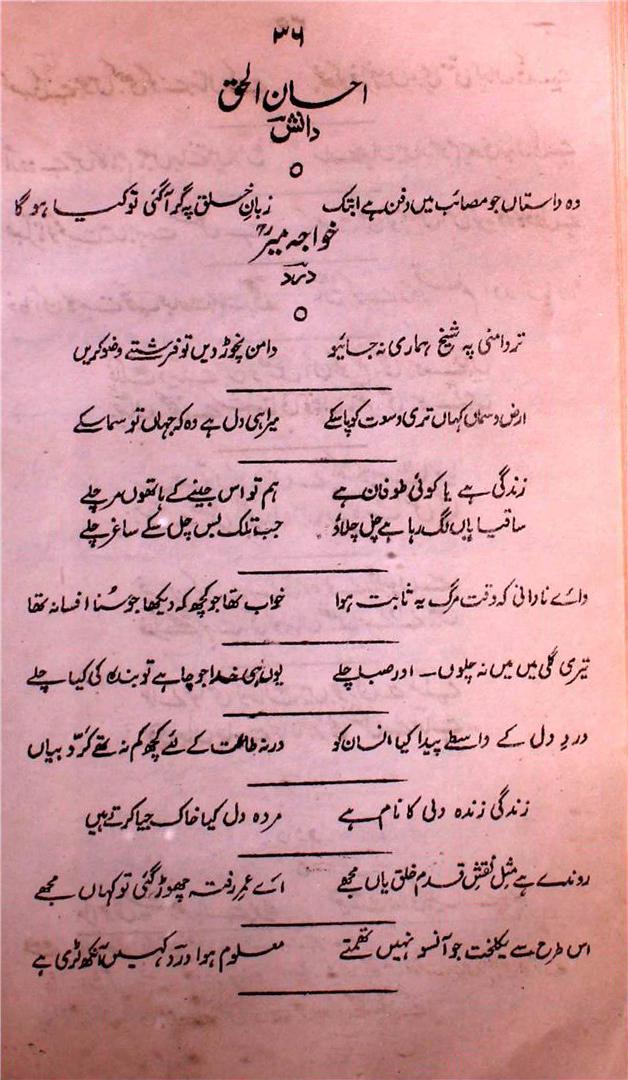 ۳۶
احسان الحق
دانش
وہ داستاں جو مصائب میں دفن ہے ابتک زبانِ خلق پہ گر آگئی تو کیا ہوگا
خواجہ میر
درد
تردامنی پہ شیخ ہماری نہ جائیو دامن نچوڑ دیں تو فرشتے وضو کریں
ارض و سماں کہاں تری وسعت کو پا سکے میرا ہی دل ہے وہ کہ جہاں تو سما سکے
زندگی ہے یا کوئی طوفان ہے ہم تو اس جینے کے ہاتھوں مر چلے
ساقیا یاں لگ رہا ہے چل چلاؤ جب تلک بس چل سکے ساغر چلے
وائے نادانی کہ وقت مرگ یہ ثابت ہوا خواب تھا جو کچھ کہ دیکھا جو سُنا افسانہ تھا
تیری گلی میں میں نہ چلوں - اور صبا چلے یوں ہی خدا جو چاہے تو بندے کی کیا چلے
دردِ دل کے واسطے پیدا کیا انسان کو ورنہ طاعت کے لئے کچھ کم نہ تھے کرّ و بیاں
زندگی زندہ دلی کا نام ہے مردہ دل کیا خاک جیا کرتے ہیں
روندے ہے مثل نقش قدم خلق یاں مجھے اے عمر رفتہ چھوڑ گئی تو کہاں مجھے
اس طرح سے یکلخت جو آنسو نہیں تھمتے معلوم ہوا درد کہیں آنکھ لڑی ہے